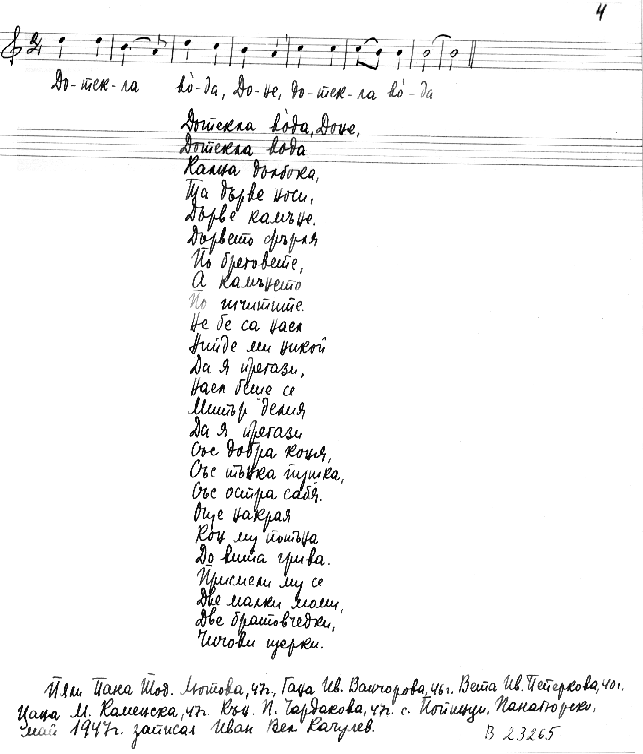 4
До-тек-ла во́-да, До-не, до-тек-ла во́-да
Дотекла во́да, Доне,
Дотекла вода
Кална долбока,
Тца дърве носи,
Дърве камъне.
Дървето фърля
По бреговете,
А камънето
По
Не бе са наел
Нийде ми никой
Да я прегази,
Наел беше се
Митър делия
Да я прегази
Със добра коня,
Със тънка пушка,
Със остра сабя.
Още накрая
Кон му потъна
До вита грива.
Присмели му се
Две малки моми,
Две братовчедки,
Чичови щерки.
Пели Пана Тод. Лютова, 47г., Гана Ив. Ванчорова, 46г. Вета Ив. Петеркова, 40г.
Цана М. Каменска, 47г. Кън. П. Чардакова, 47г. с. Попинци, Панагюрско,
май 1947г. записал Иван Вел Качулев.
В 23265